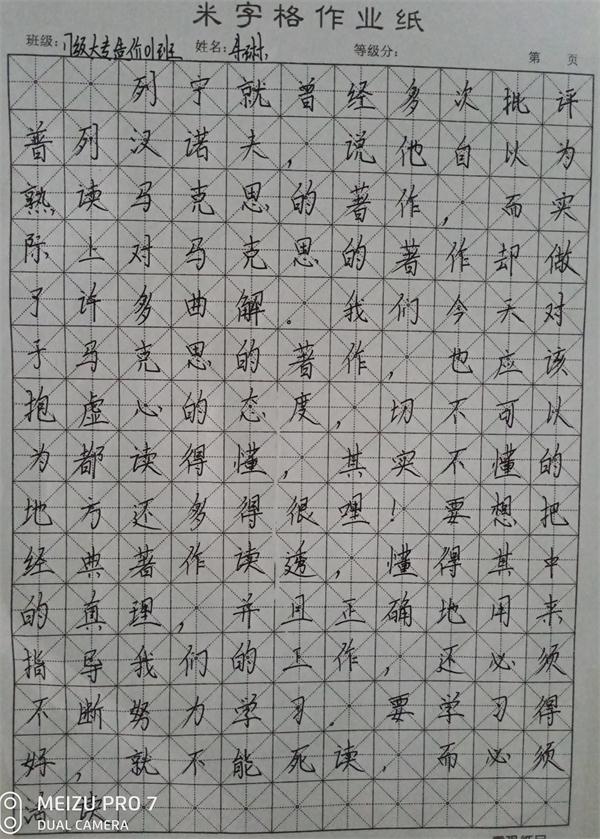 米字格作业纸
班级：17级大专告价01班 姓名： 等级分： 第 页
列宁就曾经多次批评
普列汉诺夫，说他自以为
熟读马克思的著作，而实
际上对马克思的著作却做
了许多曲解。我们今天对
于马克思的著作，也应该
抱虚心的态度，切不可以
为都读得懂，其实不懂的
地方还多得很哩！要想把
经典著作读透，懂得其中
的真理，并且正确地用来
指导我们的工作，还必须
不断努力学习．要学习得
好，就不能死读，而必须
活读
MEIZU PRO 7
DUAL CAMERA